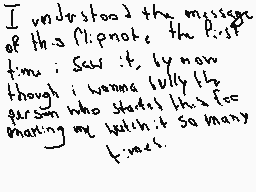 I understood the message
of this flipnote the first
time i saw it, by now
though i wanna bully the
person who started this for
making me watch it so many
times.